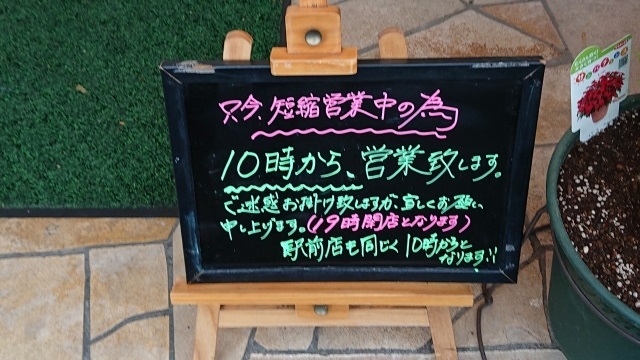 只今、短縮営業中の為
10時から、営業致します。
ご迷惑お掛け致しますが、宜しくお願い
申し上げます。(19時閉店となります)
駅前店も同じく10時からと
なります!!